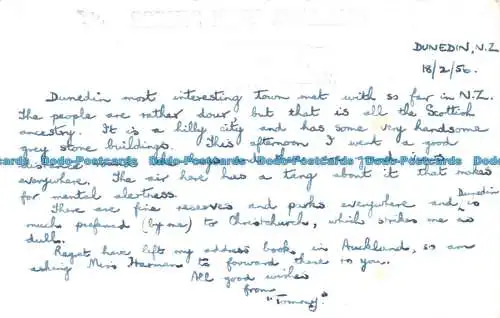 DUNEDIN, N.Z.
18/2/56.
Dunedin most interesting town met with so far in N.Z.
The people are rather dour but that is all the Scottish
ancestry. It is a hilly city and has some very handsome
grey stone buildings. This afternoon I went a good
Dodo-Postcards Dodo-Postcards Dodo-Postcards
everywhere. The air here has a tang about it that makes
for mental alertness.
There are fine reserves and parks everywhere and, Dunedin is
much preferred (by me) to Christchurch, which strikes me as
dull.
Regret have left my address book in Auckland, so am
asking Miss to forward these to you.
All good wishes
from